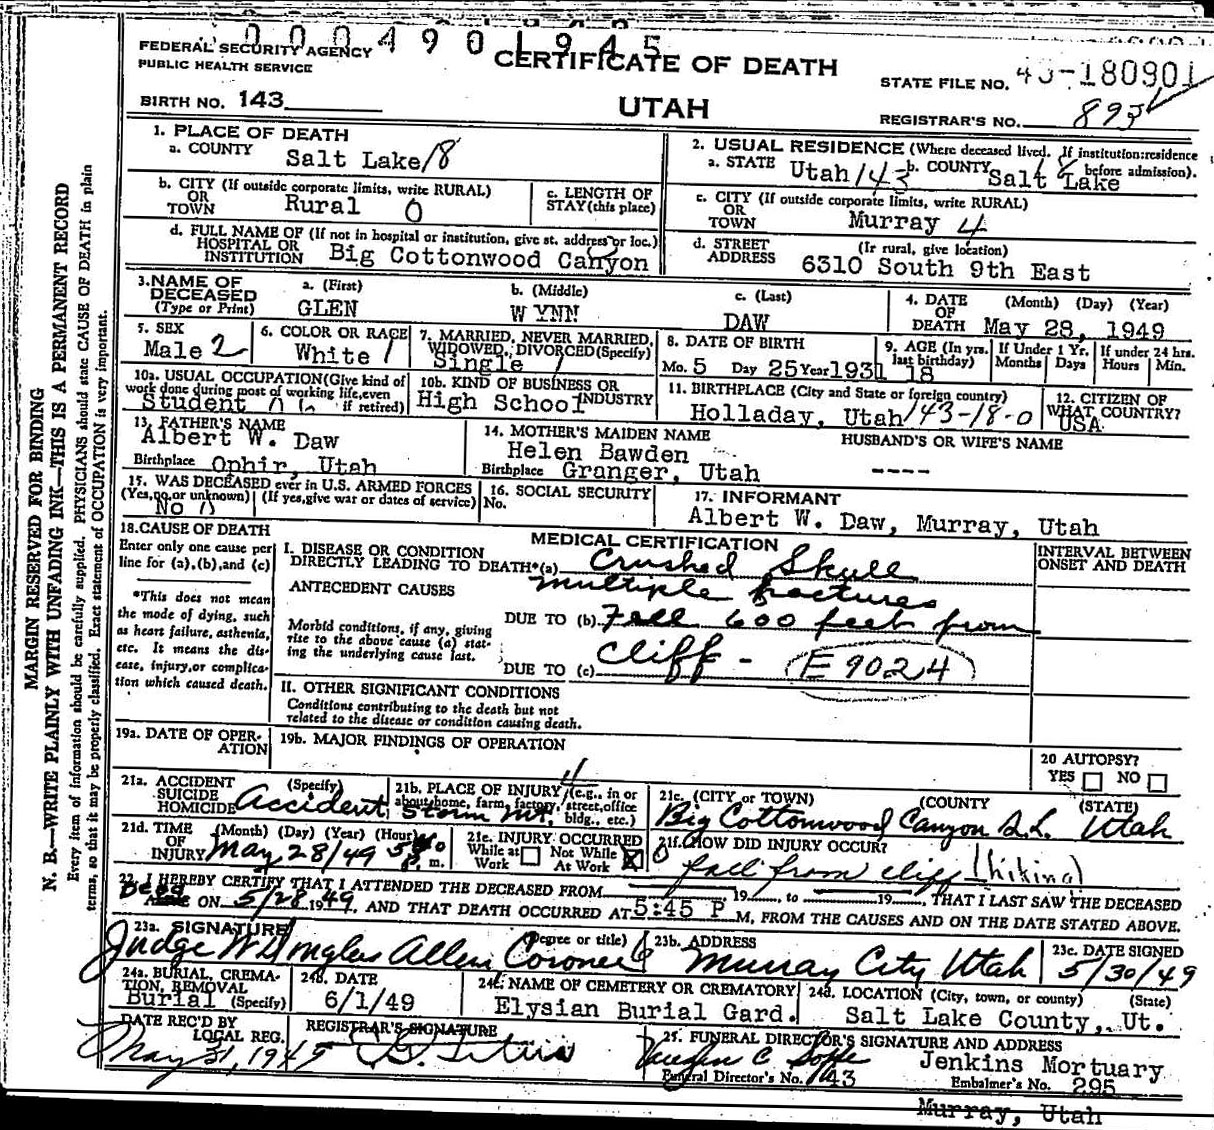 0 0 0 4 9 0 1 9 4 5
FEDERAL SECURITY AGENCY
PUBLIC HEALTH SERVICE
CERTIFICATE OF DEATH
STATE FILE NO. 43-180901
BIRTH NO. 143
UTAH
REGISTRAR'S NO. 895
MARGIN RESERVED FOR BINDING
N. B.—WRITE PLAINLY WITH UNFADING INK—THIS IS A PERMANENT RECORD
Every item of information should be carefully supplied. PHYSICIANS should state CAUSE OF DEATH in plain
terms, so that it may be properly classified. Exact statement of OCCUPATION is very important.
1. PLACE OF DEATH
a. COUNTY Salt Lake/8
2. USUAL RESIDENCE (Where deceased lived. If institution:residence before admission).
a. STATE Utah/43 b. COUNTY Salt Lake
b. CITY (If outside corporate limits, write RURAL)
OR
TOWN Rural 0
c. LENGTH OF
STAY(this place)
c. CITY (If outside corporate limits, write RURAL)
OR
TOWN Murray 4
d. FULL NAME OF (If not in hospital or institution, give st. address or loc.)
HOSPITAL OR
INSTITUTION Big Cottonwood Canyon
d. STREET (If rural, give location)
ADDRESS 6310 South 9th East
3. NAME OF DECEASED (Type or Print)
a. (First) GLEN
b. (Middle) WYNN
c. (Last) DAW
4. DATE OF DEATH (Month) (Day) (Year)
May 28, 1949
5. SEX
Male 2
6. COLOR OR RACE
White /
7. MARRIED, NEVER MARRIED,
WIDOWED, DIVORCED(Specify)
Single /
8. DATE OF BIRTH
Mo. 5 Day 25 Year 1931
9. AGE (In yrs. last birthday) 18
If Under 1 Yr. Months Days
If under 24 hrs. Hours Min.
10a. USUAL OCCUPATION(Give kind of
work done during most of working life,even
if retired)
Student
10b. KIND OF BUSINESS OR INDUSTRY
High School
11. BIRTHPLACE (City and State or foreign country)
Holladay, Utah/143-18-0
12. CITIZEN OF WHAT COUNTRY?
USA
13. FATHER'S NAME
Albert W. Daw
Birthplace Ophir, Utah
14. MOTHER'S MAIDEN NAME
Helen Bawden
Birthplace Granger, Utah
HUSBAND'S OR WIFE'S NAME
----
15. WAS DECEASED ever in U.S. ARMED FORCES
(Yes,no,or unknown) (If yes,give war or dates of service)
No 0
16. SOCIAL SECURITY
No.
17. INFORMANT
Albert W. Daw, Murray, Utah
18. CAUSE OF DEATH
Enter only one cause per
line for (a),(b),and (c)
*This does not mean
the mode of dying, such
as heart failure, asthenia,
etc. It means the dis-
ease, injury,or complica-
tion which caused death.
MEDICAL CERTIFICATION
INTERVAL BETWEEN
ONSET AND DEATH
I. DISEASE OR CONDITION
DIRECTLY LEADING TO DEATH*(a) Crushed Skull
multiple fractures
ANTECEDENT CAUSES
Morbid conditions, if any, giving
rise to the above cause (a) stat-
ing the underlying cause last.
DUE TO (b) Fell 600 feet from
DUE TO (c) cliff - E9024
II. OTHER SIGNIFICANT CONDITIONS
Conditions contributing to the death but not
related to the disease or condition causing death.
19a. DATE OF OPER-
ATION
19b. MAJOR FINDINGS OF OPERATION
20 AUTOPSY?
YES NO
21a. ACCIDENT (Specify)
SUICIDE
HOMICIDE Accident
21b. PLACE OF INJURY (e.g., in or
about home, farm, factory, street,office
bldg., etc.)
Storm Mt.
21c. (CITY or TOWN) (COUNTY (STATE)
Big Cottonwood Canyon S.L. Utah
21d. TIME OF INJURY (Month) (Day) (Year) (Hour)
May 28/49 m.
21e. INJURY OCCURRED
While at Work Not While At Work
21f. HOW DID INJURY OCCUR?
fall from cliff (hiking)
22. I HEREBY CERTIFY THAT I ATTENDED THE DECEASED FROM 19 , to 19 , THAT I LAST SAW THE DECEASED
Dead
Alive ON 5/28 1949, AND THAT DEATH OCCURRED AT 5:45 P M, FROM THE CAUSES AND ON THE DATE STATED ABOVE.
23a. SIGNATURE (Degree or title)
Judge W Douglas Allen Coroner
23b. ADDRESS
Murray City Utah
23c. DATE SIGNED
5/30/49
24a. BURIAL, CREMA-
TION, REMOVAL
Burial (Specify)
24B. DATE
6/1/49
24c. NAME OF CEMETERY OR CREMATORY
Elysian Burial Gard.
24d. LOCATION (City, town, or county) (State)
Salt Lake County, Ut.
DATE REC'D BY
LOCAL REG.
May 31, 1949
REGISTRAR'S SIGNATURE
25. FUNERAL DIRECTOR'S SIGNATURE AND ADDRESS
Jenkins Mortuary
Funeral Director's No. 143
Embalmer's No. 295
Murray, Utah